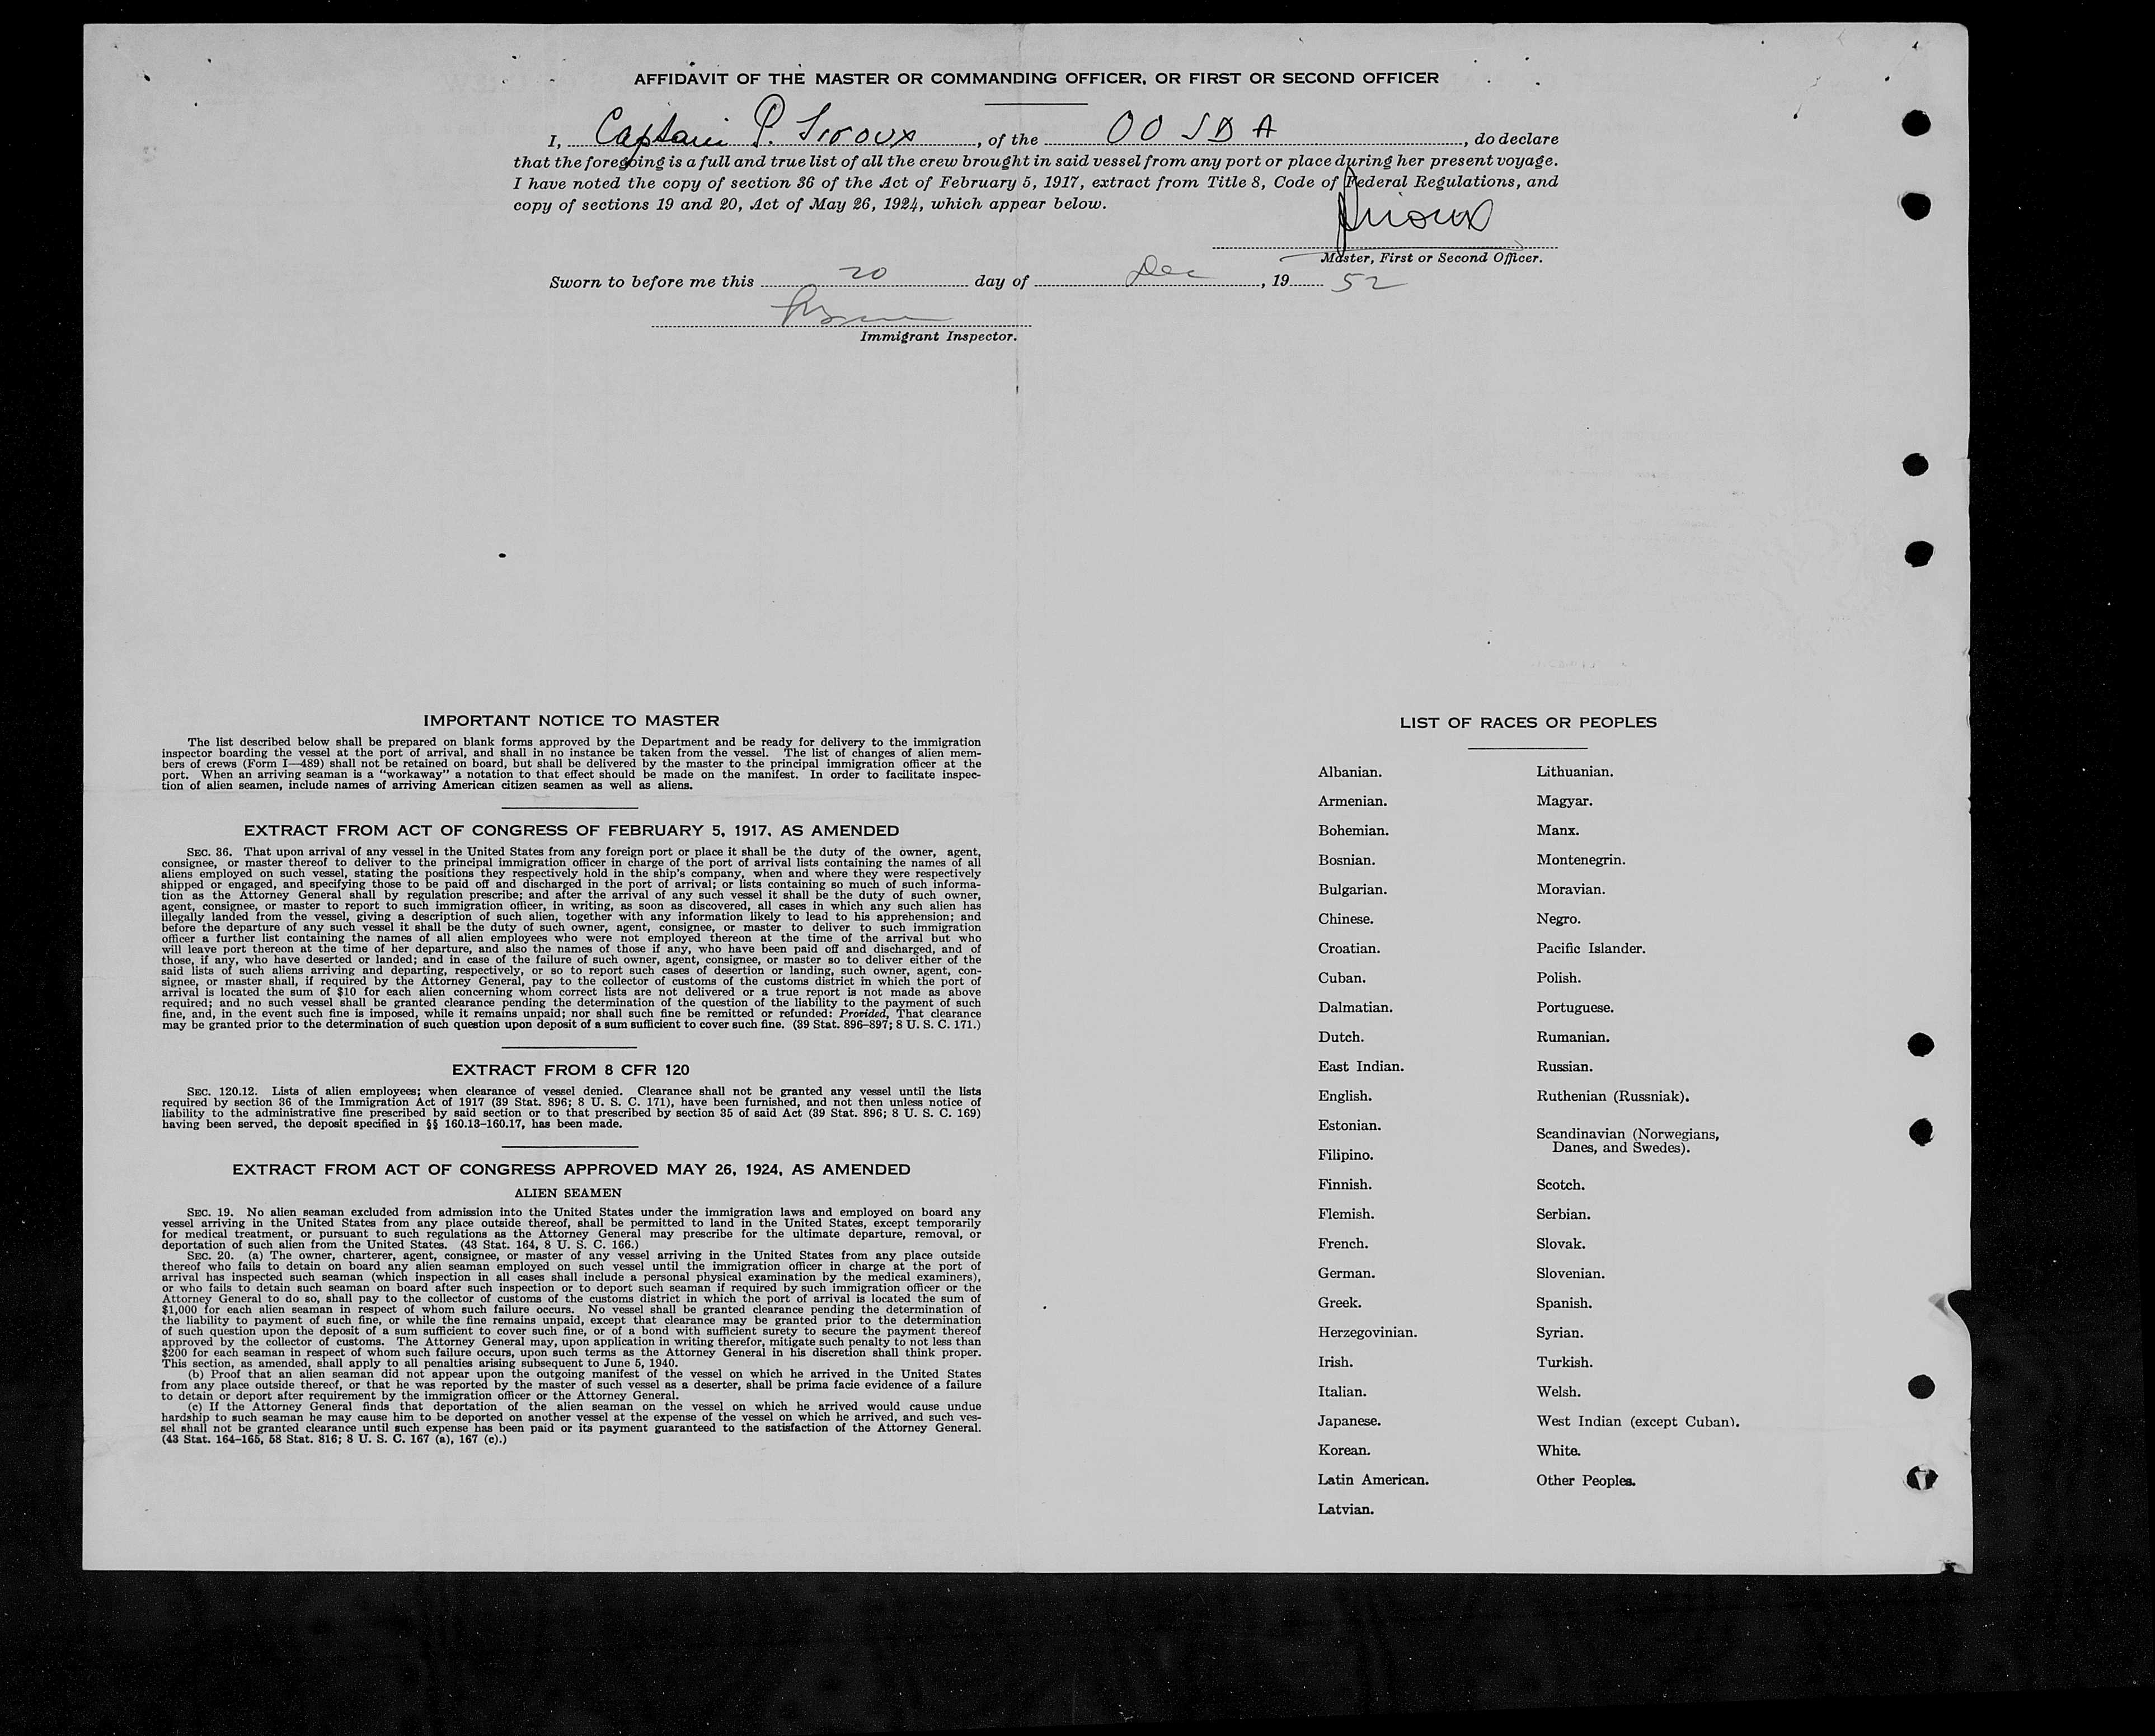 AFFIDAVIT OF THE MASTER OR COMMANDING OFFICER, OR FIRST OR SECOND OFFICER
I, Captain P. , of the OO SDA , do declare
that the foregoing is a full and true list of all the crew brought in said vessel from any port or place during her present voyage.
I have noted the copy of section 36 of the Act of February 5, 1917, extract from Title 8, Code of Federal Regulations, and
copy of sections 19 and 20, Act of May 26, 1924, which appear below.
Master, First or Second Officer.
Sworn to before me this 20 day of Dec , 19 52
Immigrant Inspector.
IMPORTANT NOTICE TO MASTER
The list described below shall be prepared on blank forms approved by the Department and be ready for delivery to the immigration
inspector boarding the vessel at the port of arrival, and shall in no instance be taken from the vessel. The list of changes of alien mem-
bers of crews (Form I—489) shall not be retained on board, but shall be delivered by the master to the principal immigration officer at the
port. When an arriving seaman is a "workaway" a notation to that effect should be made on the manifest. In order to facilitate inspec-
tion of alien seamen, include names of arriving American citizen seamen as well as aliens.
EXTRACT FROM ACT OF CONGRESS OF FEBRUARY 5, 1917, AS AMENDED
SEC. 36. That upon arrival of any vessel in the United States from any foreign port or place it shall be the duty of the owner, agent,
consignee, or master thereof to deliver to the principal immigration officer in charge of the port of arrival lists containing the names of all
aliens employed on such vessel, stating the positions they respectively hold in the ship's company, when and where they were respectively
shipped or engaged, and specifying those to be paid off and discharged in the port of arrival; or lists containing so much of such informa-
tion as the Attorney General shall by regulation prescribe; and after the arrival of any such vessel it shall be the duty of such owner,
agent, consignee, or master to report to such immigration officer, in writing, as soon as discovered, all cases in which any such alien has
illegally landed from the vessel, giving a description of such alien, together with any information likely to lead to his apprehension; and
before the departure of any such vessel it shall be the duty of such owner, agent, consignee, or master to deliver to such immigration
officer a further list containing the names of all alien employees who were not employed thereon at the time of the arrival but who
will leave port thereon at the time of her departure, and also the names of those if any, who have been paid off and discharged, and of
those, if any, who have deserted or landed; and in case of the failure of such owner, agent, consignee, or master so to deliver either of the
said lists of such aliens arriving and departing, respectively, or so to report such cases of desertion or landing, such owner, agent, con-
signee, or master shall, if required by the Attorney General, pay to the collector of customs of the customs district in which the port of
arrival is located the sum of $10 for each alien concerning whom correct lists are not delivered or a true report is not made as above
required; and no such vessel shall be granted clearance pending the determination of the question of the liability to the payment of such
fine, and, in the event such fine is imposed, while it remains unpaid; nor shall such fine be remitted or refunded: Provided, That clearance
may be granted prior to the determination of such question upon deposit of a sum sufficient to cover such fine. (39 Stat. 896–897; 8 U. S. C. 171.)
EXTRACT FROM 8 CFR 120
SEC. 120.12. Lists of alien employees; when clearance of vessel denied. Clearance shall not be granted any vessel until the lists
required by section 36 of the Immigration Act of 1917 (39 Stat. 896; 8 U. S. C. 171), have been furnished, and not then unless notice of
liability to the administrative fine prescribed by said section or to that prescribed by section 35 of said Act (39 Stat. 896; 8 U. S. C. 169)
having been served, the deposit specified in §§ 160.13–160.17, has been made.
EXTRACT FROM ACT OF CONGRESS APPROVED MAY 26, 1924, AS AMENDED
ALIEN SEAMEN
SEC. 19. No alien seaman excluded from admission into the United States under the immigration laws and employed on board any
vessel arriving in the United States from any place outside thereof, shall be permitted to land in the United States, except temporarily
for medical treatment, or pursuant to such regulations as the Attorney General may prescribe for the ultimate departure, removal, or
deportation of such alien from the United States. (43 Stat. 164, 8 U. S. C. 166.)
SEC. 20. (a) The owner, charterer, agent, consignee, or master of any vessel arriving in the United States from any place outside
thereof who fails to detain on board any alien seaman employed on such vessel until the immigration officer in charge at the port of
arrival has inspected such seaman (which inspection in all cases shall include a personal physical examination by the medical examiners),
or who fails to detain such seaman on board after such inspection or to deport such seaman if required by such immigration officer or the
Attorney General to do so, shall pay to the collector of customs of the customs district in which the port of arrival is located the sum of
$1,000 for each alien seaman in respect of whom such failure occurs. No vessel shall be granted clearance pending the determination of
the liability to payment of such fine, or while the fine remains unpaid, except that clearance may be granted prior to the determination
of such question upon the deposit of a sum sufficient to cover such fine, or of a bond with sufficient surety to secure the payment thereof
approved by the collector of customs. The Attorney General may, upon application in writing therefor, mitigate such penalty to not less than
$200 for each seaman in respect of whom such failure occurs, upon such terms as the Attorney General in his discretion shall think proper.
This section, as amended, shall apply to all penalties arising subsequent to June 5, 1940.
(b) Proof that an alien seaman did not appear upon the outgoing manifest of the vessel on which he arrived in the United States
from any place outside thereof, or that he was reported by the master of such vessel as a deserter, shall be prima facie evidence of a failure
to detain or deport after requirement by the immigration officer or the Attorney General.
(c) If the Attorney General finds that deportation of the alien seaman on the vessel on which he arrived would cause undue
hardship to such seaman he may cause him to be deported on another vessel at the expense of the vessel on which he arrived, and such ves-
sel shall not be granted clearance until such expense has been paid or its payment guaranteed to the satisfaction of the Attorney General.
(43 Stat. 164–165, 58 Stat. 816; 8 U. S. C. 167 (a), 167 (c).)
LIST OF RACES OR PEOPLES
Albanian.
Armenian.
Bohemian.
Bosnian.
Bulgarian.
Chinese.
Croatian.
Cuban.
Dalmatian.
Dutch.
East Indian.
English.
Estonian.
Filipino.
Finnish.
Flemish.
French.
German.
Greek.
Herzegovinian.
Irish.
Italian.
Japanese.
Korean.
Latin American.
Latvian.
Lithuanian.
Magyar.
Manx.
Montenegrin.
Moravian.
Negro.
Pacific Islander.
Polish.
Portuguese.
Rumanian.
Russian.
Ruthenian (Russniak).
Scandinavian (Norwegians,
Danes, and Swedes).
Scotch.
Serbian.
Slovak.
Slovenian.
Spanish.
Syrian.
Turkish.
Welsh.
West Indian (except Cuban).
White.
Other Peoples.